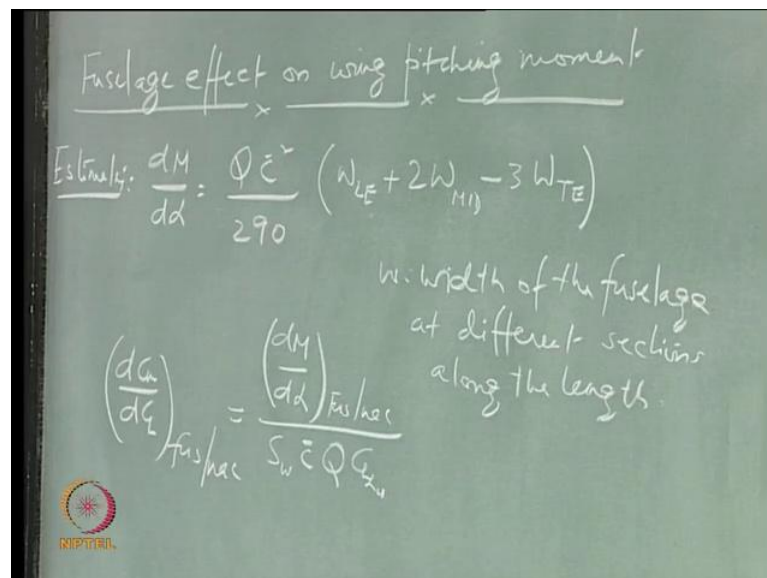 Fuselage effect on wing pitching moment
Estimate: dM/dα = Q c̄²/290 (W_LE + 2 W_MID - 3 W_TE)
w: width of the fuselage
at different sections
along the length.
(dCm/dCL)fus/nac = (dM/dα)Fus/nac / S_w c̄ Q C_Lαw
NPTEL